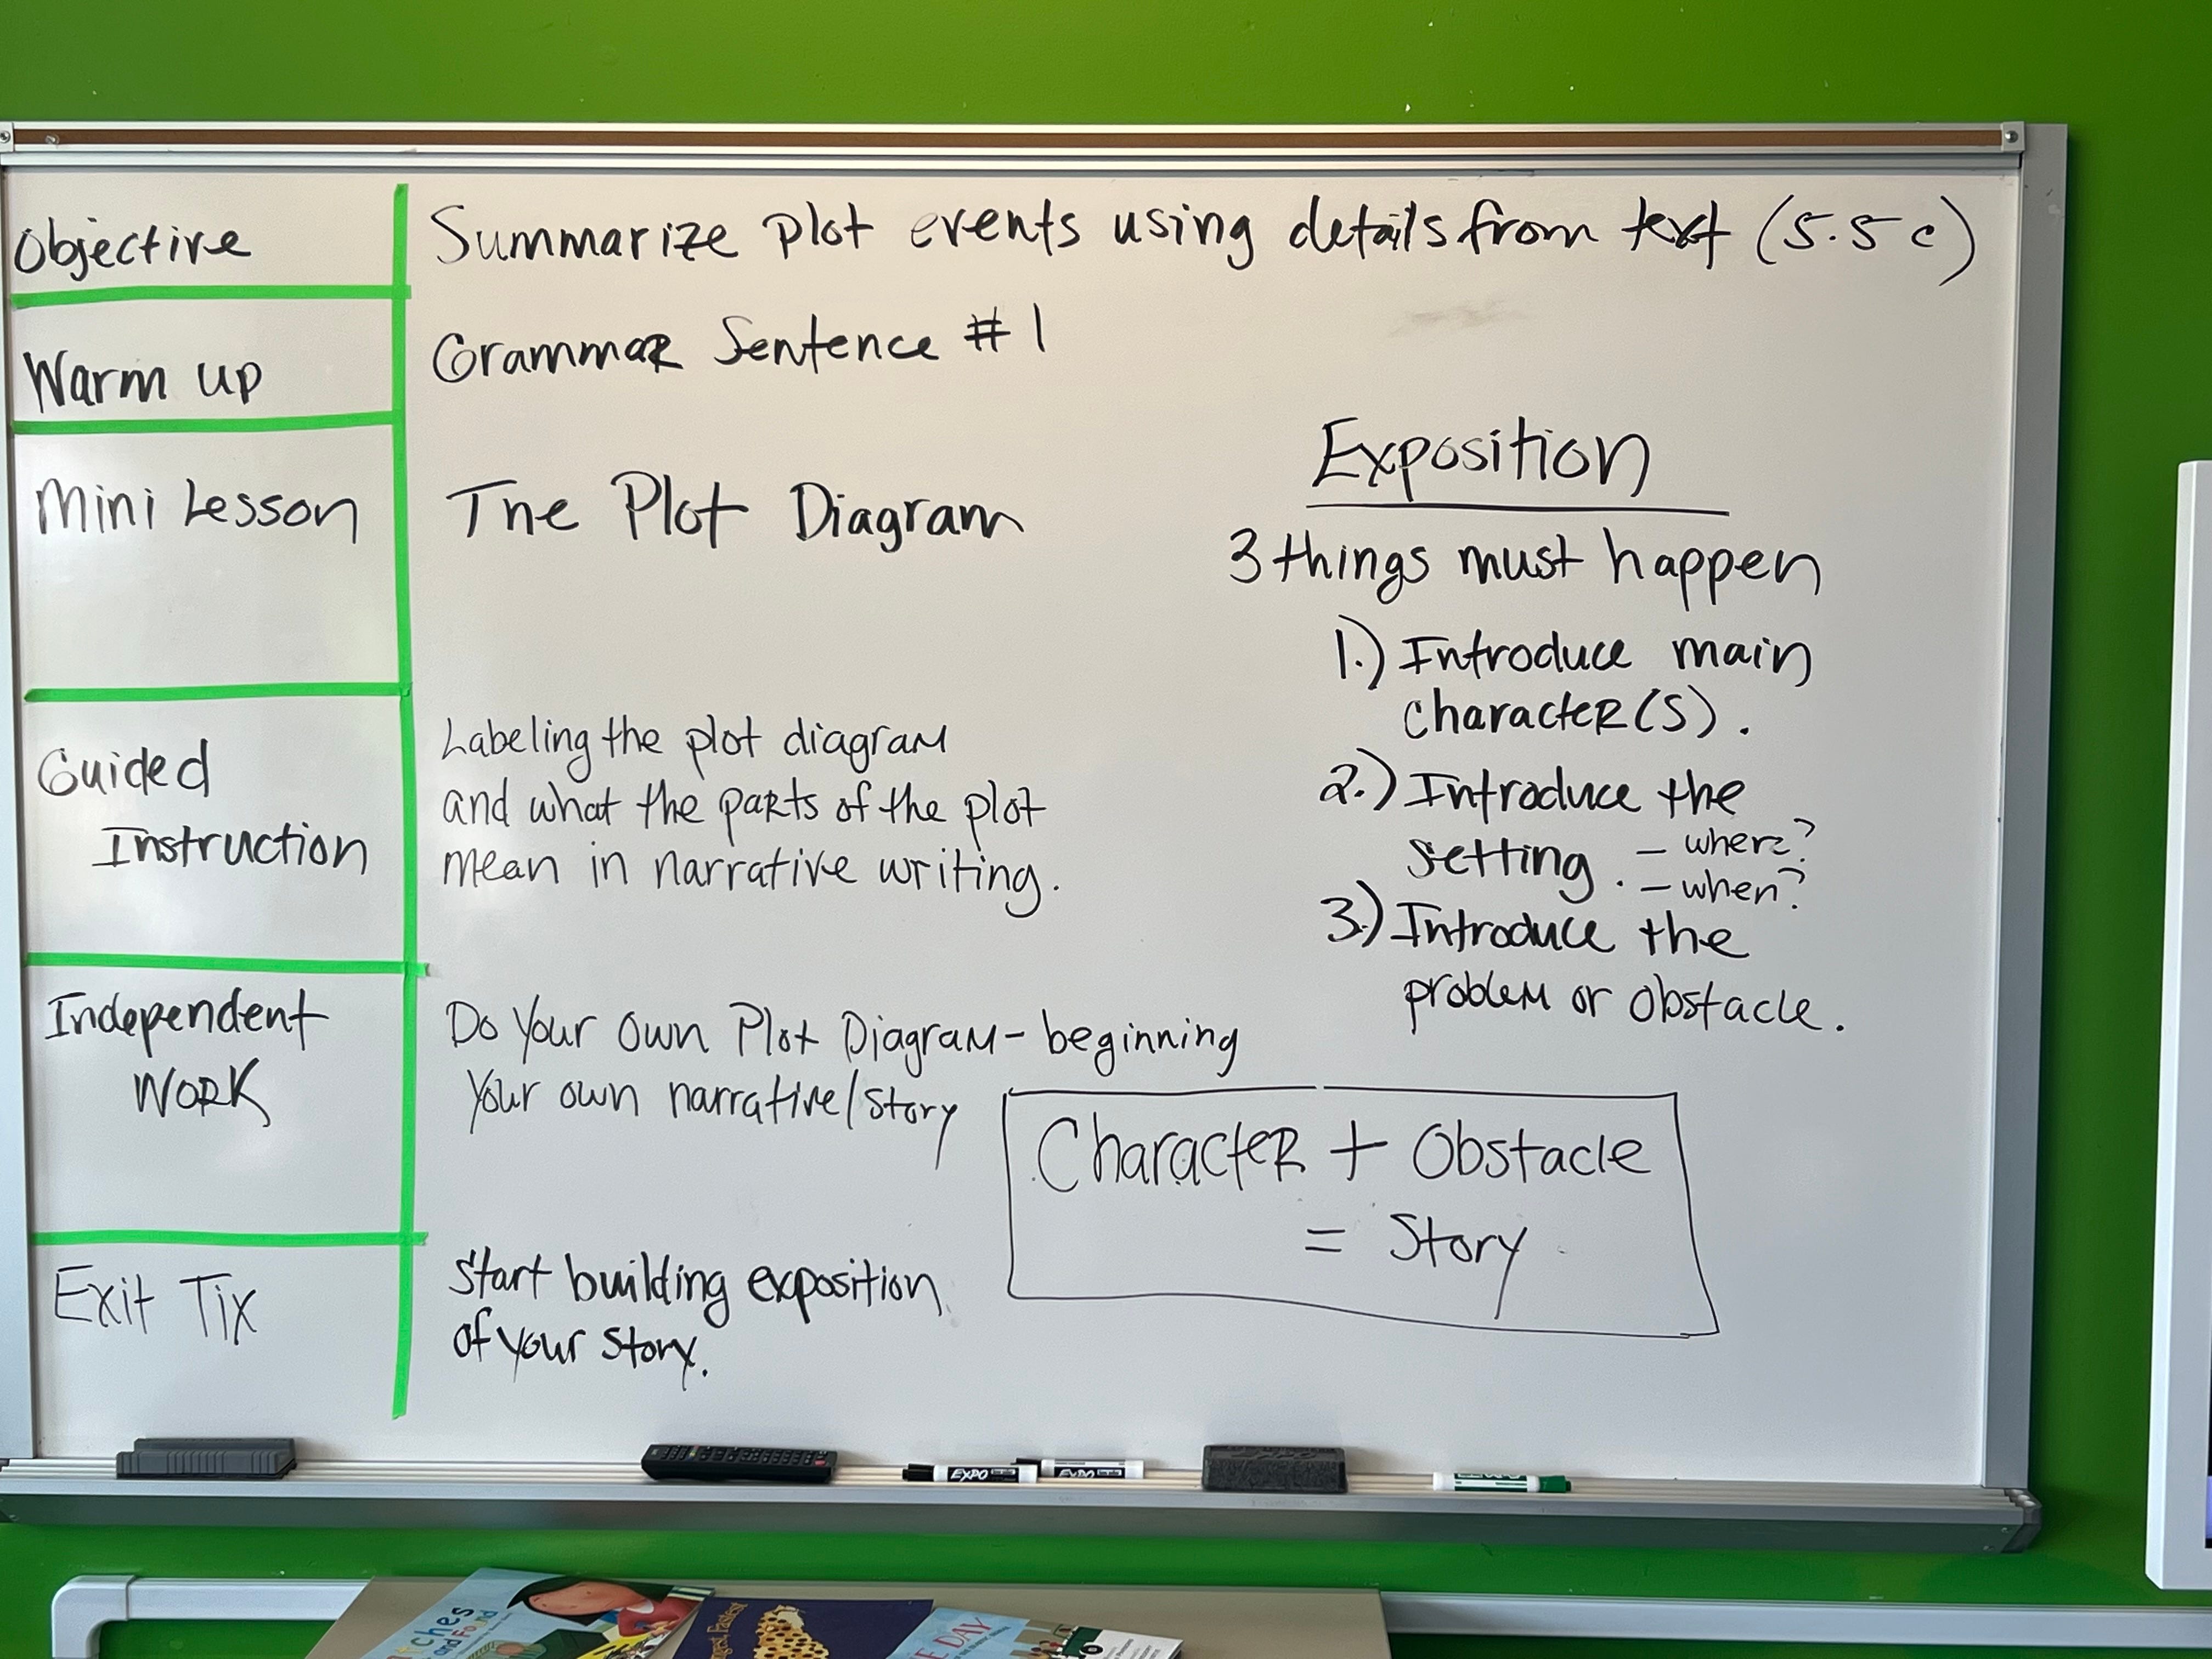 Objective
Summarize plot events using details from text (5.5c)
Warm up
Grammar Sentence #1
Mini Lesson
The Plot Diagram
Guided
Instruction
Labeling the plot diagram
and what the parts of the plot
mean in narrative writing.
Independent
Work
Do Your Own Plot Diagram - beginning
Your own narrative/story
Exit Tix
Start building exposition
of your story.
Exposition
3 things must happen
1.) Introduce main
character(s).
2.) Introduce the
setting. - where?
- when?
3.) Introduce the
problem or obstacle.
Character + Obstacle
= Story
EXPO
EXPO
and Found
Fastest
DAY